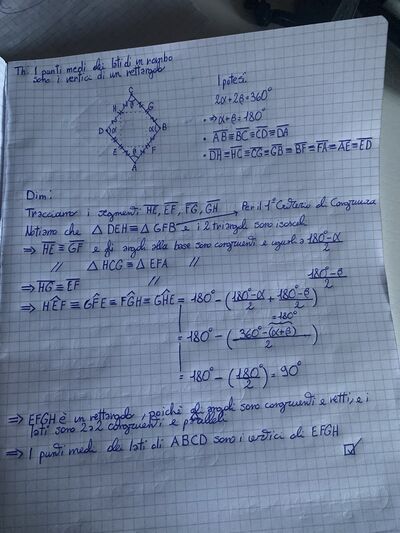 Th: I punti medi dei lati di un rombo
sono i vertici di un rettangolo
Ipotesi
2α+2β=360°
• ⇒α+β=180°
• AB≅BC≅CD≅DA
• DH≅HC≅CG≅GB≅BF≅FA≅AE≅ED
C
H G
D α α B
E F
A
Dim:
Tracciamo i segmenti HE, EF, FG, GH
Notiamo che △DEH≅△GFB e i 2 triangoli sono isosceli → Per il 1° Criterio di Congruenza
⇒ HE≅GF e gli angoli alla base sono congruenti e uguali a 180°-α/2
// △HCG≅△EFA // 180°-β/2
⇒ HG≅EF
⇒ HÊF≅GF̂E≅FĜH≅GĤE = 180°-(180°-α/2 + 180°-β/2)
=180°
= 180°-(360°-(α+β)/2)
= 180°-(180°/2)=90°
⇒ EFGH è un rettangolo, poiché gli angoli sono congruenti e retti, e i
lati sono 2 a 2 congruenti e paralleli
⇒ I punti medi dei lati di ABCD sono i vertici di EFGH